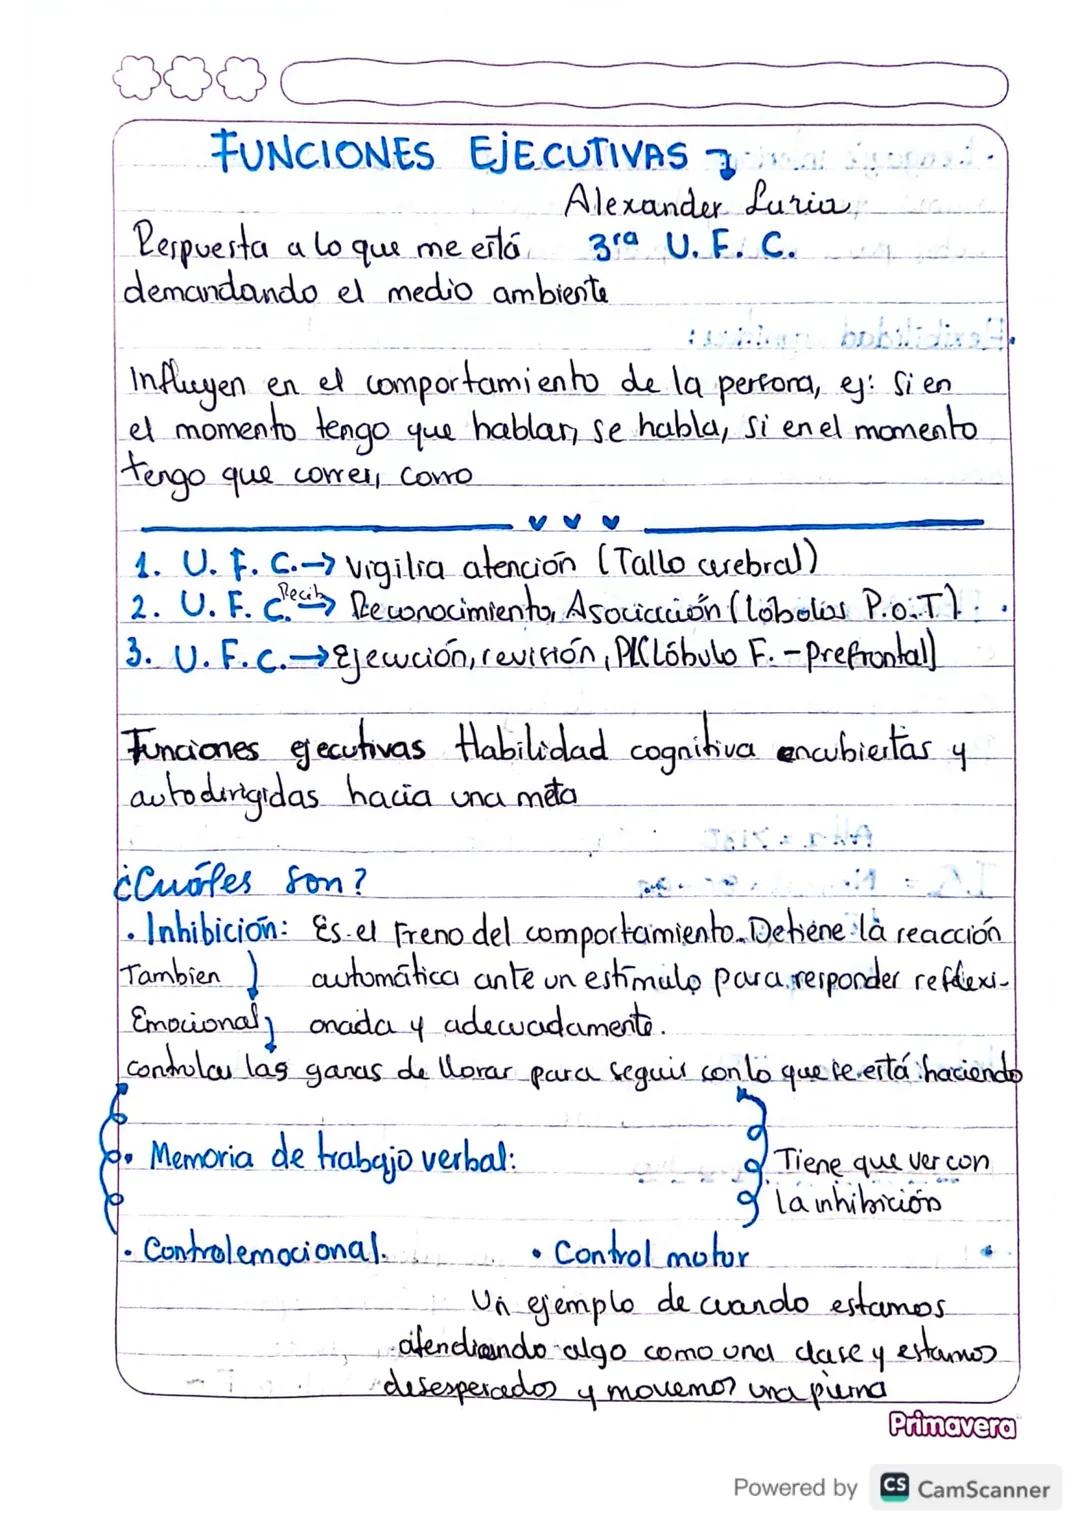 FUNCIONES EJECUTIVAS
Alexander Luria
Respuesta a lo que me está 3ra U. F. C.
demandando el medio ambiente
Influyen en el comportamiento de la persona, ej: Si en
el momento tengo que hablar, se habla, si en el momento
tengo que correr, corro
1. U. F. C.→ Vigilia atención (Tallo cerebral)
2. U. F. C. Recib→ Reconocimiento, Asociación (lóbolos P.O.T)
3. U. F. C.→ Ejecución, revisión, (Lóbulo F. - Prefrontal)
Funciones ejecutivas Habilidad cognitiva encubiertas y
autodirigidas hacia una meta
¿Cuáles son?
• Inhibición: Es el Freno del comportamiento. Detiene la reacción
Tambien automática ante un estímulo para responder reflexi-
Emocional onada y adecuadamente.
controlar las ganas de llorar para seguir con lo que se está haciendo
• Memoria de trabajo verbal:
Tiene que ver con
la inhibición
• Control emocional. • Control motor
Un ejemplo de cuando estamos
atendiendo algo como una clase y estamos
desesperados y movemos una pierna
Primavera
Powered by CS CamScanner